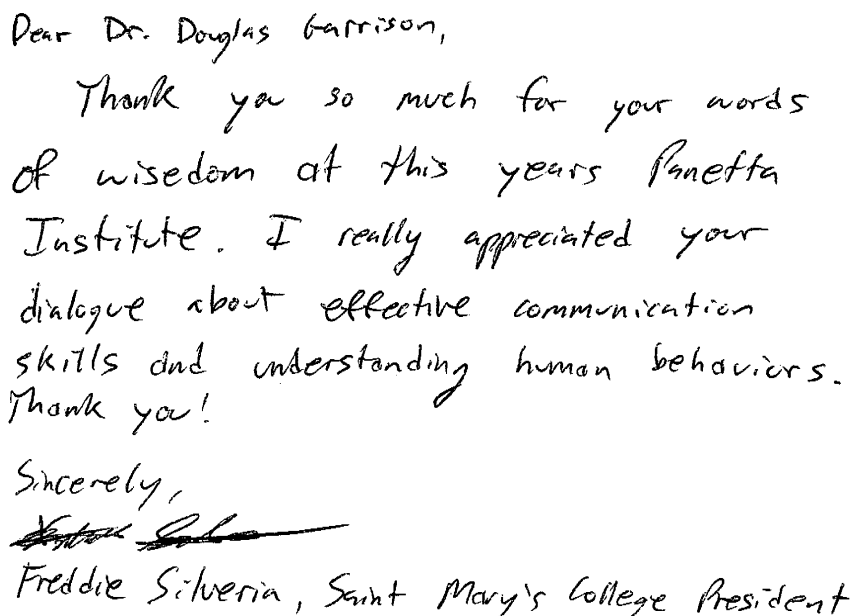 Dear Dr. Douglas Garrison,
Thank you so much for your words
of wisedom at this years Panetta
Institute. I really appreciated your
dialogue about effective communication
skills and understanding human behaviors.
Thank you!
Sincerely,
Freddie Silveria, Saint Mary's College President